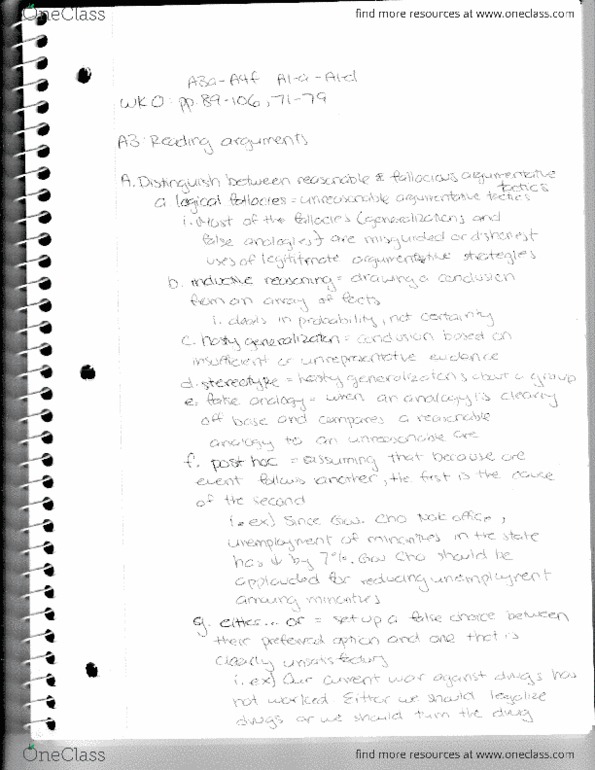 OneClass
find more resources at www.oneclass.com
A3a-A4f A1-a-A1-d
WK 0: pp. 89-106, 71-79
A3: Reading arguments
A. Distinguish between reasonable & fallacious argumentative
tactics
a logical fallacies = unreasonable argumentative tactics
i. Most of the fallacies (generalizations and
false analogies) are misguided or dishonest
uses of legitimate argumentative strategies
b. inductive reasoning = drawing a conclusion
from an array of facts
i. deals in probability, not certainty
c. hasty generalization = conclusion based on
insufficient or unrepresentative evidence
d. stereotype = hasty generalizations about a group
e. false analogy = when an analogy is clearly
off base and compares a reasonable
analogy to an unreasonable one
f. post hoc = assuming that because one
event follows another, the first is the cause
of the second
i. ex) Since Gov. Cho office,
unemployment of minorities in the state
has ↓ by 7%. Gov Cho should be
applauded for reducing unemployment
among minorities
g. either... or = set up a false choice between
their preferred option and one that is
clearly unsatisfactory
i. ex) Our current war against drugs has
not worked. Either we should legalize
drugs or we should turn the drug
OneClass
find more resources at www.oneclass.com